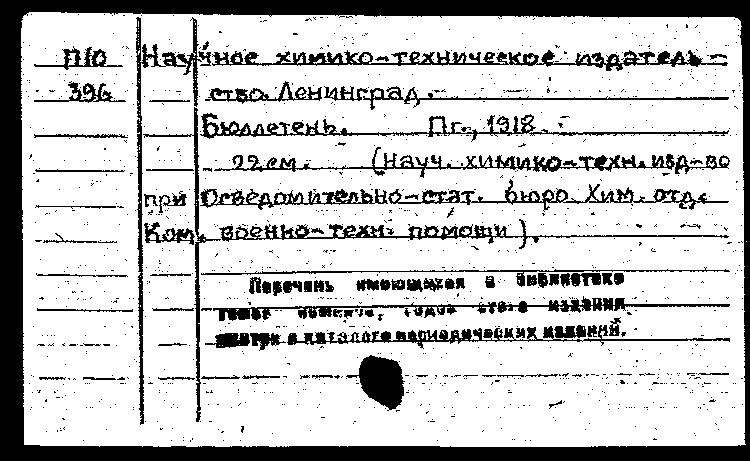 П10 Научное химико-техническое издатель-
396 ство. Ленинград.-
Бюллетень. Пг., 1918.-
22см. (Науч. химико-техн. изд-во
при Осведомительно-стат. бюро Хим. отд.
Ком. военно-техн. помощи).
Перечень имеющихся в библиотеке
номеров, годов этого издания
смотри в каталоге периодических изданий.